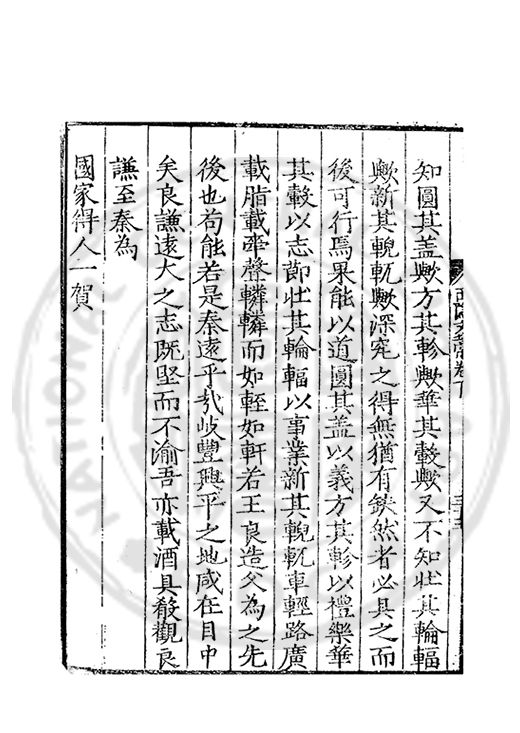 知圓其盖歟方其軫歟華其轂歟又不知壯其輪輻
歟新其輗軏歟深究之得無猶有鈌然者必具之而
後可行焉果能以道圓其盖以義方其軫以禮樂華
其轂以志節壯其輪輻以事業新其輗軏車輕路廣
載脂載牽聲轔轔而如輊如軒若王良造父為之先
後也苟能若是秦遠乎㢤岐豐興平之地咸在目中
矣良謙遠大之志既堅而不渝吾亦載酒具殽觀良
謙至秦為
國家得人一賀
卷下
三十五